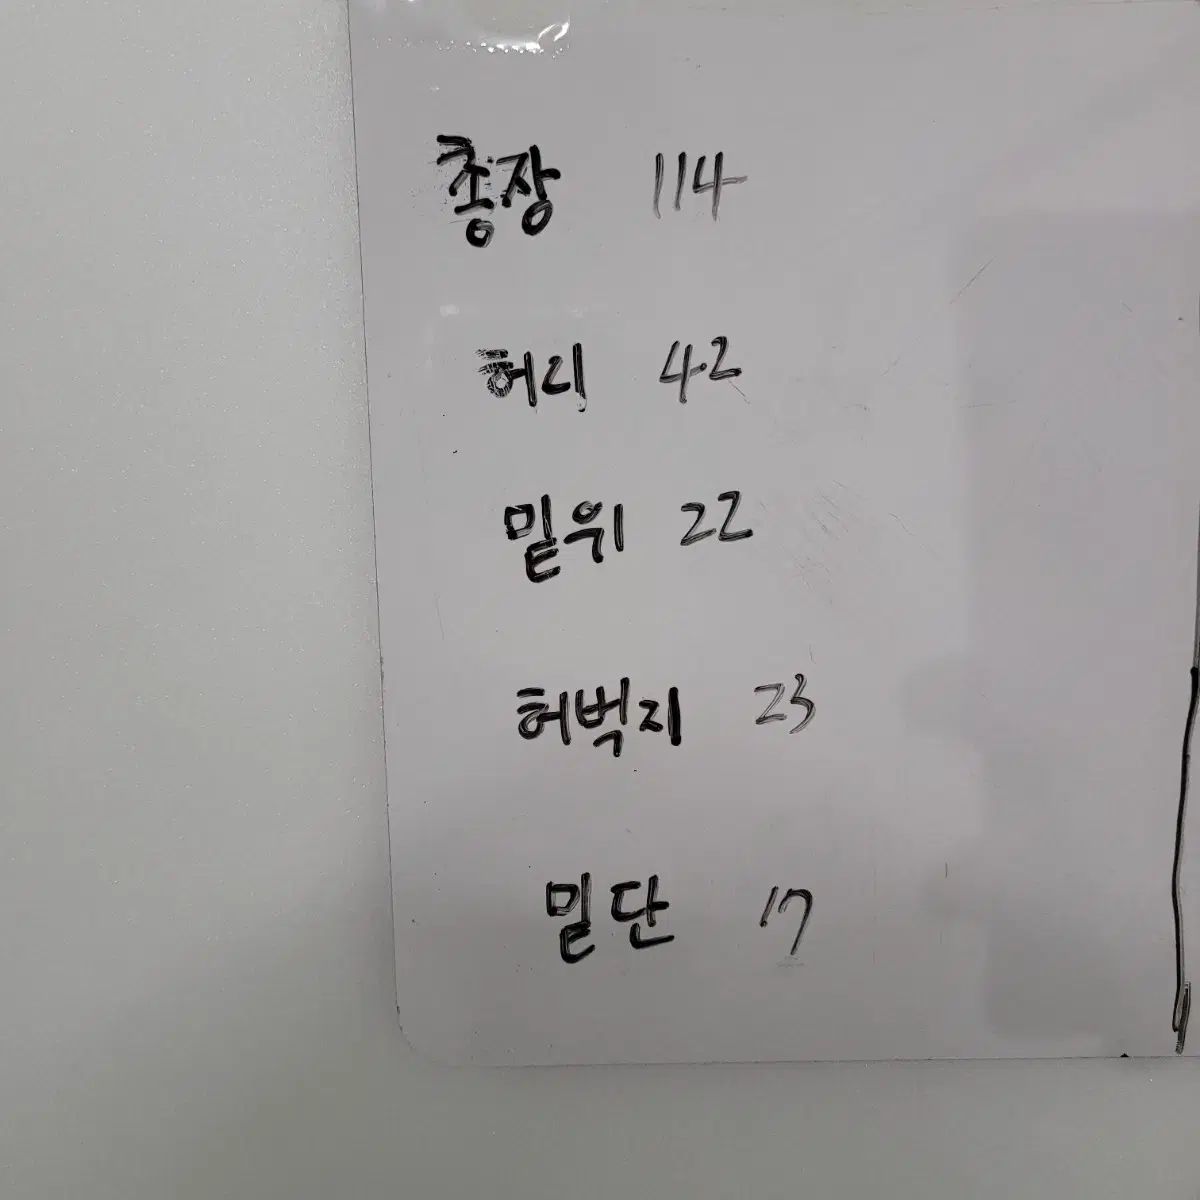 총장 114
허리 42
밑위 22
허벅지 23
밑단 17